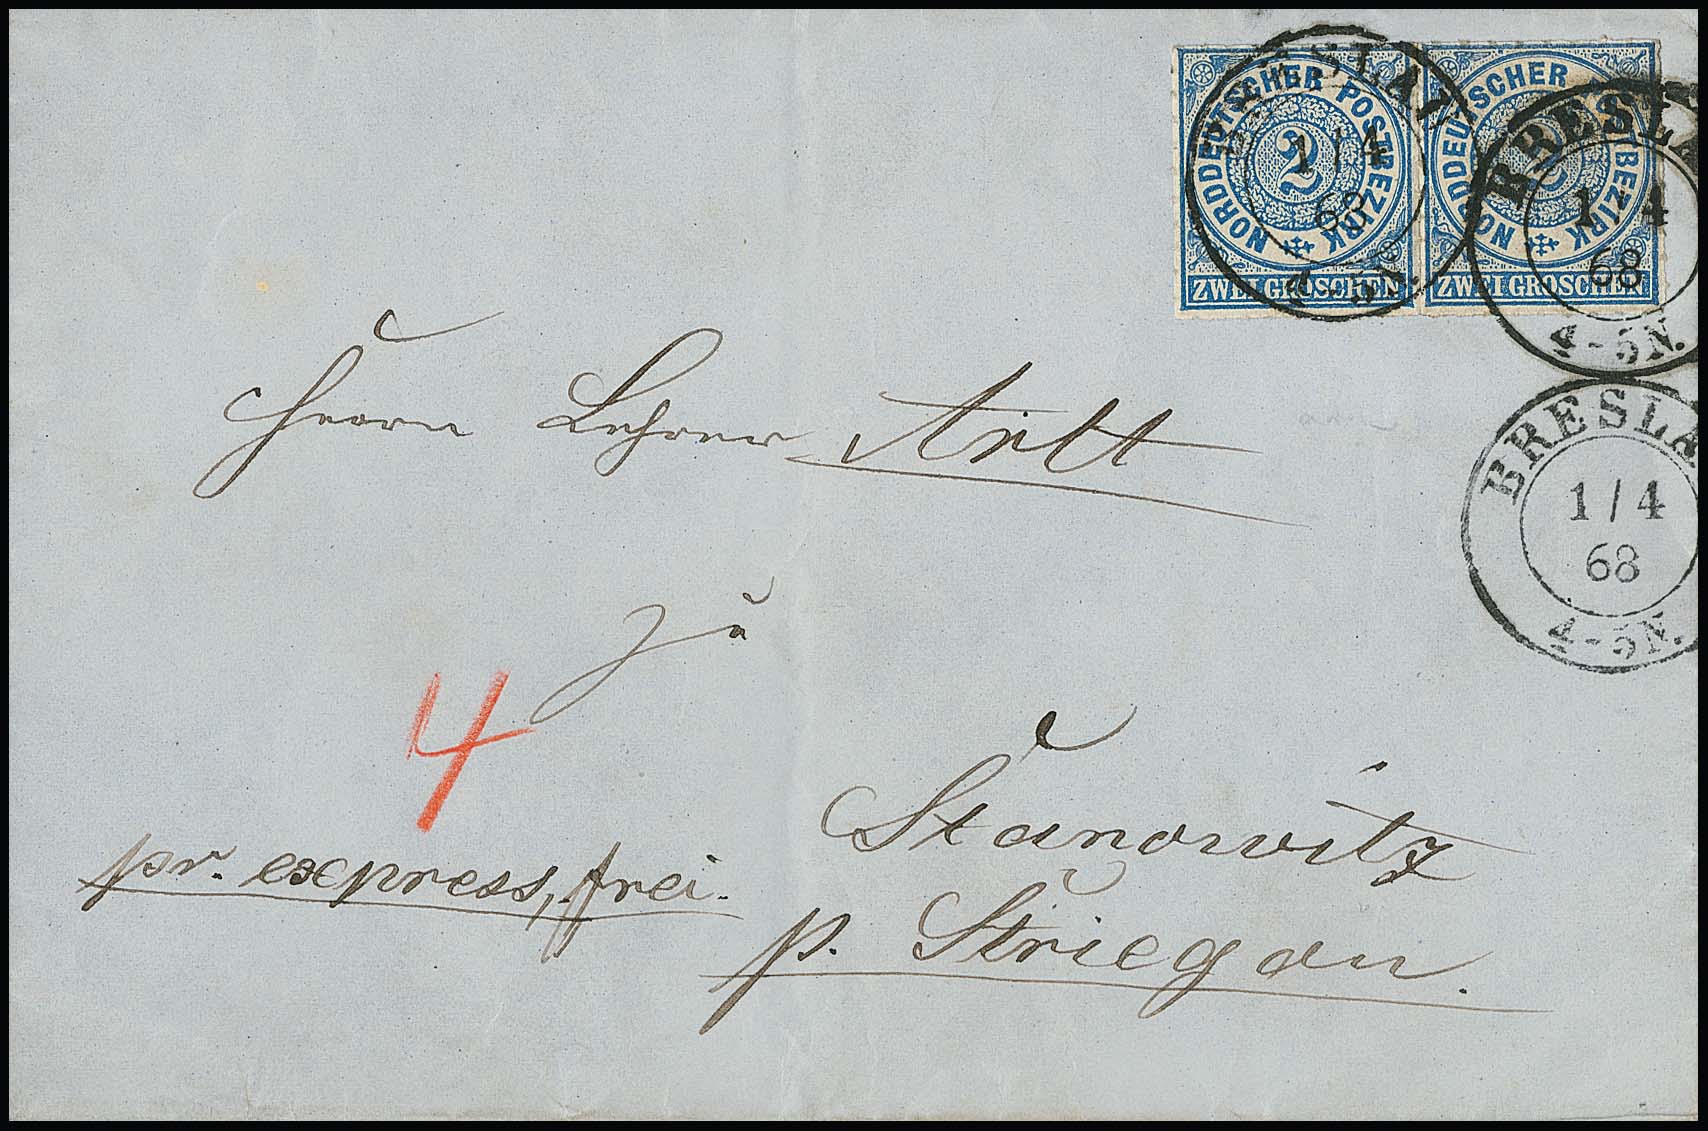 NORDDEUTSCHER POSTBEZIRK
2
ZWEI GROSCHEN
NORDDEUTSCHER POSTBEZIRK
2
ZWEI GROSCHEN
BRESLAU
1/4
68
4-5N.
BRESLA
1/4
68
4-5N.
BRESLA
1/4
68
4-5N.
Herrn Lehrer Arlt
zu
4
Stanowitz
pr. express, frei.
p. Striegau.